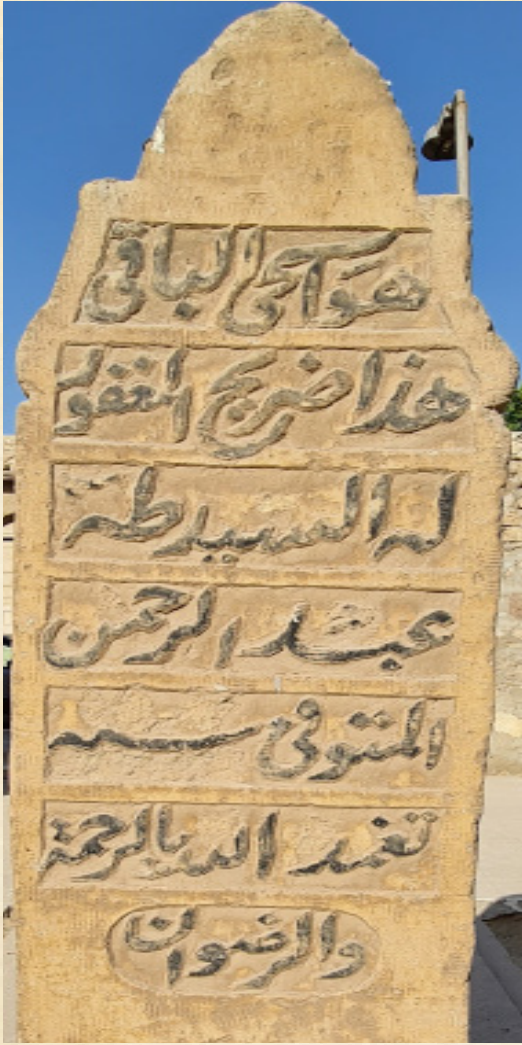 هو الحي الباقي
هذا ضريح المغفور
له السيد طه
عبد الرحمن
المتوفى سنه
تغمد الله بالرحمة
والرضوان